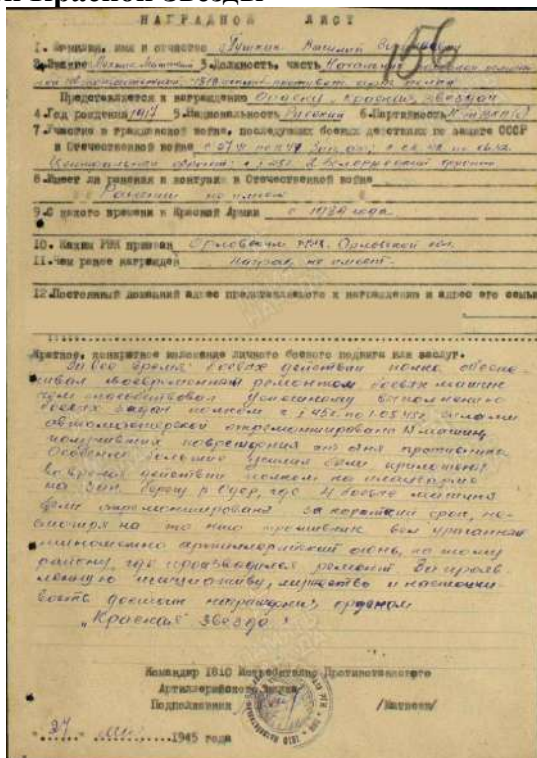 и Красной Звезды
НАГРАДНОЙ ЛИСТ
156
1. Фамилия, имя и отчество Пушкин Василий
2. Звание 3. Должность, часть Начальник
1810 полка
Представляется к награждению Ордену "Красная Звезда"
4. Год рождения 1917 5. Национальность Русский 6. Партийность
7. Участие в гражданской войне, последующих боевых действиях по защите СССР
и Отечественной войне с
2 Белорусский фронт
8. Имеет ли ранения и контузии в Отечественной войне
Ранений не имеет
9. С какого времени в Красной Армии с 1939 года
10. Каким РВК призван Орловским РВК Орловской обл.
11. Чем ранее награжден Наград не имеет
12. Постоянный домашний адрес представляемого к награждению и адрес его семьи
Краткое, конкретное изложение личного боевого подвига или заслуг.
За все время боевых действий полка обеспе-
чивал своевременным ремонтом боевых машин
чем способствовал успешному выполнению
боевых задач полком с 1.45г. по 1.05.45г. силами
автомастерской отремонтировано машин,
получивших повреждения от огня противника
Особенно большие усилия были приложены
во время действий полком на плацдарме
на зап. берегу р. Одер, где 4 боевые машины
были отремонтированы за короткий срок, не-
смотря на то что противник вел ураганный
минометно артиллерийский огонь, по тому
району, где производился ремонт. За прояв-
ленную инициативу, мужество и настойчи-
вость достоин награждения орденом
"Красная Звезда"
Командир 1810 Истребительно Противотанкового
Артиллерийского Полка
Подполковник /Матвеев/
"27" 1945 года